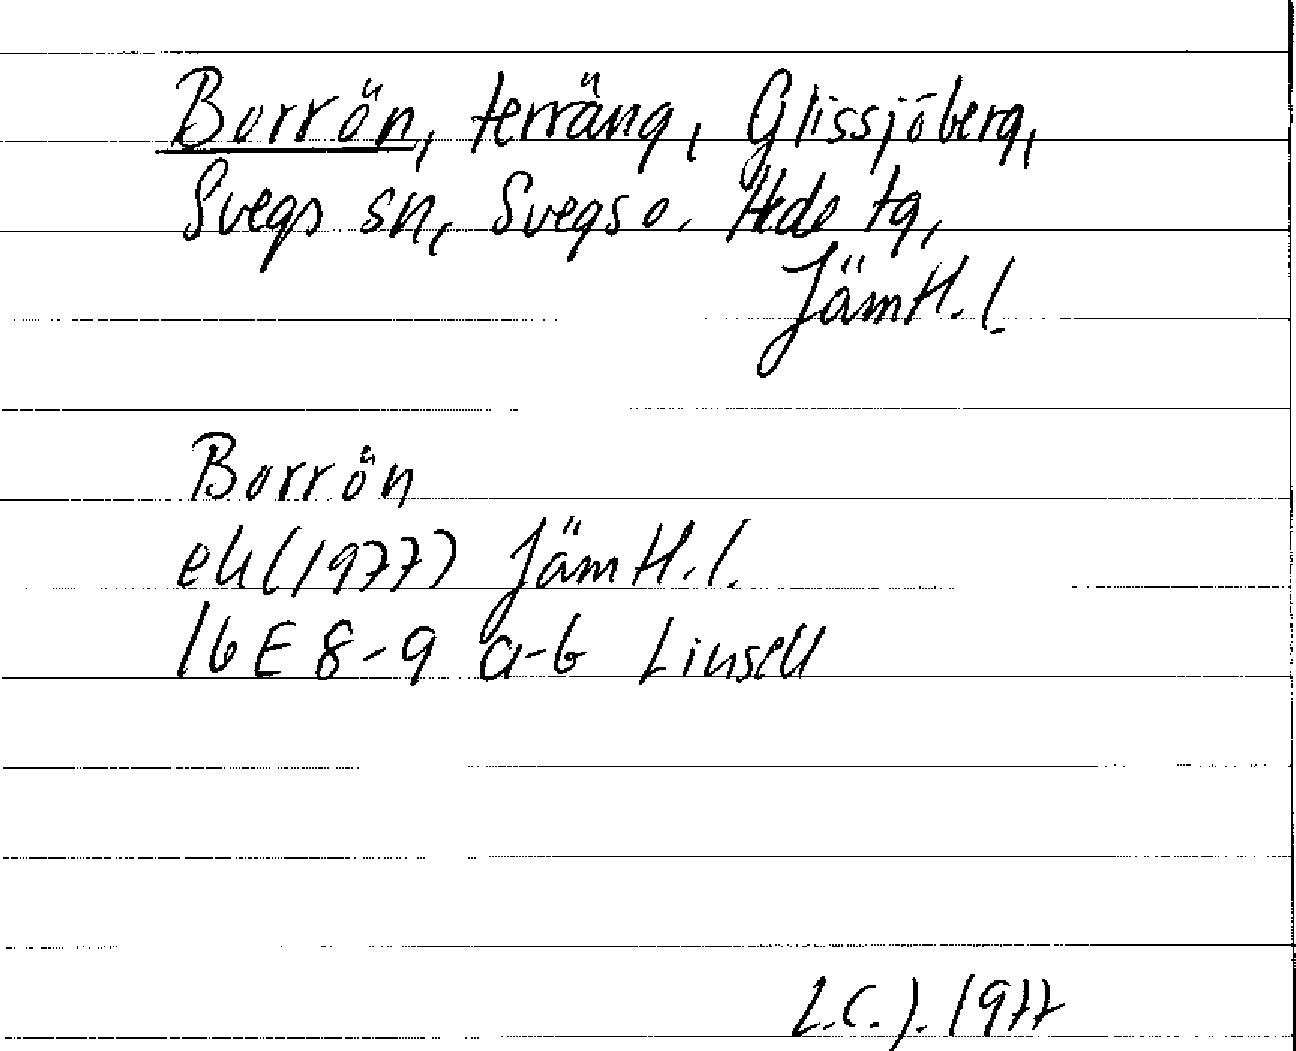 Borrön, terräng, Glissjöberg,
Svegs sn, Svegs o. Hede tg,
Jämtl. l.
Borrön
ek (1977) Jämtl. l.
16 E 8-9 a-b Linsell
L.C.J. 1977